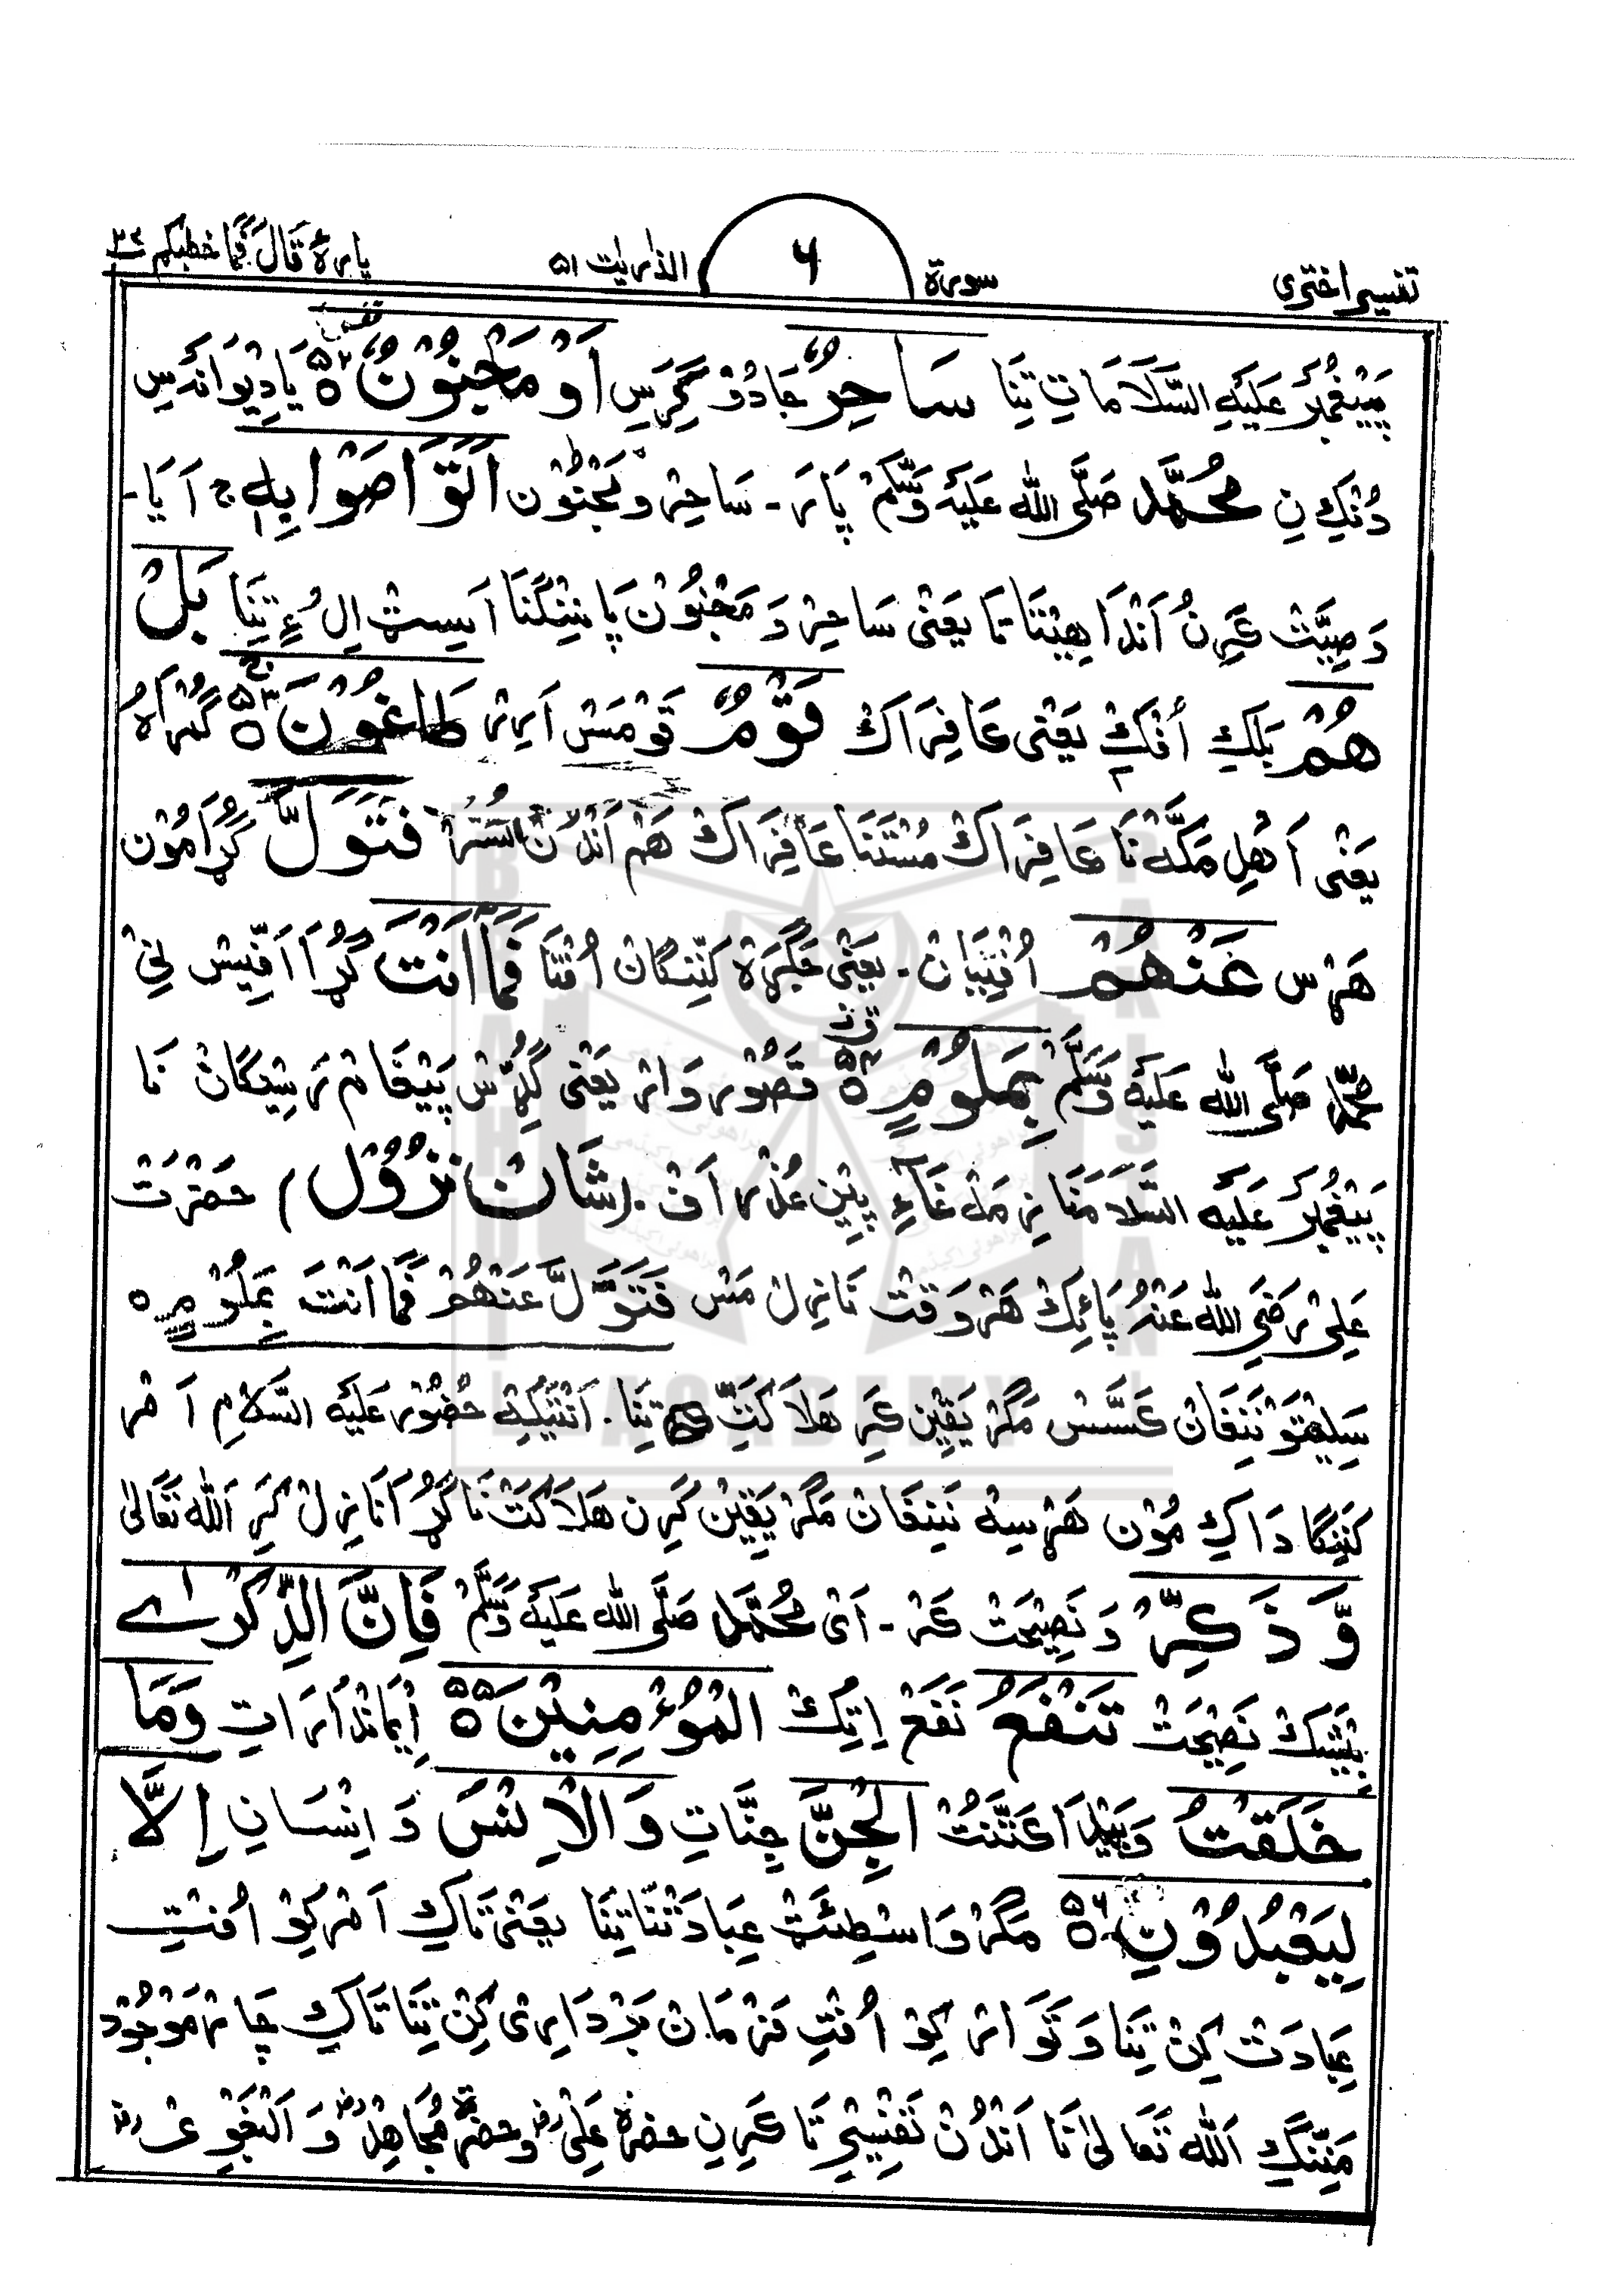 تفسیر اختری سورة ۶ الذریٰت ۵۱ پارهٔ قَالَ فَمَا خطبکم ۲۷
پَیْغَمْبَرْ عَلَیْهِ السَّلَامَاتِ تِنَا سَاحِرٌ جَادُوْگَرَسِ اَوْ مَجْنُوْنٌ ۵۲ یَا دِیْوَانَهسِ
دُنْکِ نِ مُحَمَّد صَلَّی اللّٰه عَلَیْهِ وَسَّلَمْ پَارَ - سَاحِرْ و مَجْنُوْن اَتَوَاصَوْا بِهٖ ج اَیَا -
وَصِیَّتْ کَرِنُ اَنْدَا هِیْتَنَا تَا یَعْنٰی سَاحِرْ وَ مَجْنُوْن پَانِنْگنَا اَسِٹ اِلِ ءِ تِنَا بَلْ
هُمْ بَلِکِ اُفْکِ یَعْنٰی کَافِرَاکْ قَوْمٌ قَوْمَسْ اَرِرْ طَاغُوْنَ ۵۳ گُمْرَاهُ
یَعْنٰی اَهْلِ مَکَّهْ نَا کَافِرَاکْ مُسْتَنَا کَافِرَاکْ هَمْ اَنْدُنْ فَتَوَلَّ گُڑَا مُوْن
هَڑْس عَنْهُمْ اُفْتِیَانْ - یَعْنٰی جَگَڑَه کَنِّنْگَانْ اُفْتَا فَمَا اَنْتَ گُڑَا اَفِّیْس نِیْ
مُحَمَّد صَلَّی اللّٰه عَلَیْهِ وَسَّلَمْ بِمَلُوْمٍ ۵۴ قَصُوْروَارْ یَعْنٰی گُڈْس پَیْغَامْ رَسِیْنگَانْ نَا
پَیْغَمْبَرْ عَلَیْهِ السَّلَامَنَا نِ مَهْ غَاءِ نِیْن عُذْر اَفْ . (شَانْ نُزُوْل) حَضْرَتْ
عَلِیْ رَضِیَ اللّٰه عَنْهُ پَائِکْ هَرْوَقْتْ نَازِلْ مَسْ فَتَوَلَّ عَنْهُمْ فَمَا اَنْتَ بِمَلُوْمٍ ه
سَلِیْتَوْ نَنِفَانْ کَسَّسْ مَگَرْ یَقِیْن کَرِ هَلَاکَتِ تِنَا . اَنْتَیْکِهْ حُضُوْر عَلَیْهِ السَّلَامِ اَمْر
کَنِنْگَا دَاکِ مُوْن هَڑْسِهْ نَنِفَانْ مَگَرْ یَقِیْن کَرِن هَلَاکَتْ نَا گُڑَا نَازِلْ کَرِ اَللّٰه تَعَالٰی
وَّذَکِّرْ وَ نَصِیْحَتْ کَرْ - اَیْ مُحَمَّد صَلَّی اللّٰه عَلَیْهِ وَسَّلَمْ فَاِنَّ الذِّکْرٰی
بِیْشَکْ نَصِیْحَتْ تَنْفَعُ نَفَعْ اِتِکْ الْمُؤْمِنِیْنَ ۵۵ اِیْمَانْدَارَاتِ وَمَا
خَلَقْتُ وَ پَیْدَا کَتَّنُتْ الْجِنَّ جِنَّاتِ وَالْاِنْسَ وَ اِنْسَانِ اِلَّا
لِیَعْبُدُوْنِ ۵۶ مَگَرْ وَاسْطِئَتْ عِبَادَتْنَا تِنَا یَعْنٰی تَاکِ اَمْرکِوْ اُفْتِ
عِبَادَتْ کِنْ تِنَا وَ تَوَارْ کِوْ اُفْتِ فَرْمَانْ بَرْدَارِیْ کِنْ تِنَا تَاکِ چَارْ مَوْجُوْد
مَنِّنْگِ اَللّٰه تَعَالٰی نَا اَنْدُنْ تَفْسِیْرِ تَا کَرِنِ حضرة عَلِیْ رض و حضرة مُجَاهِدْ رض وَ اَلْبَغَوِیْ رض